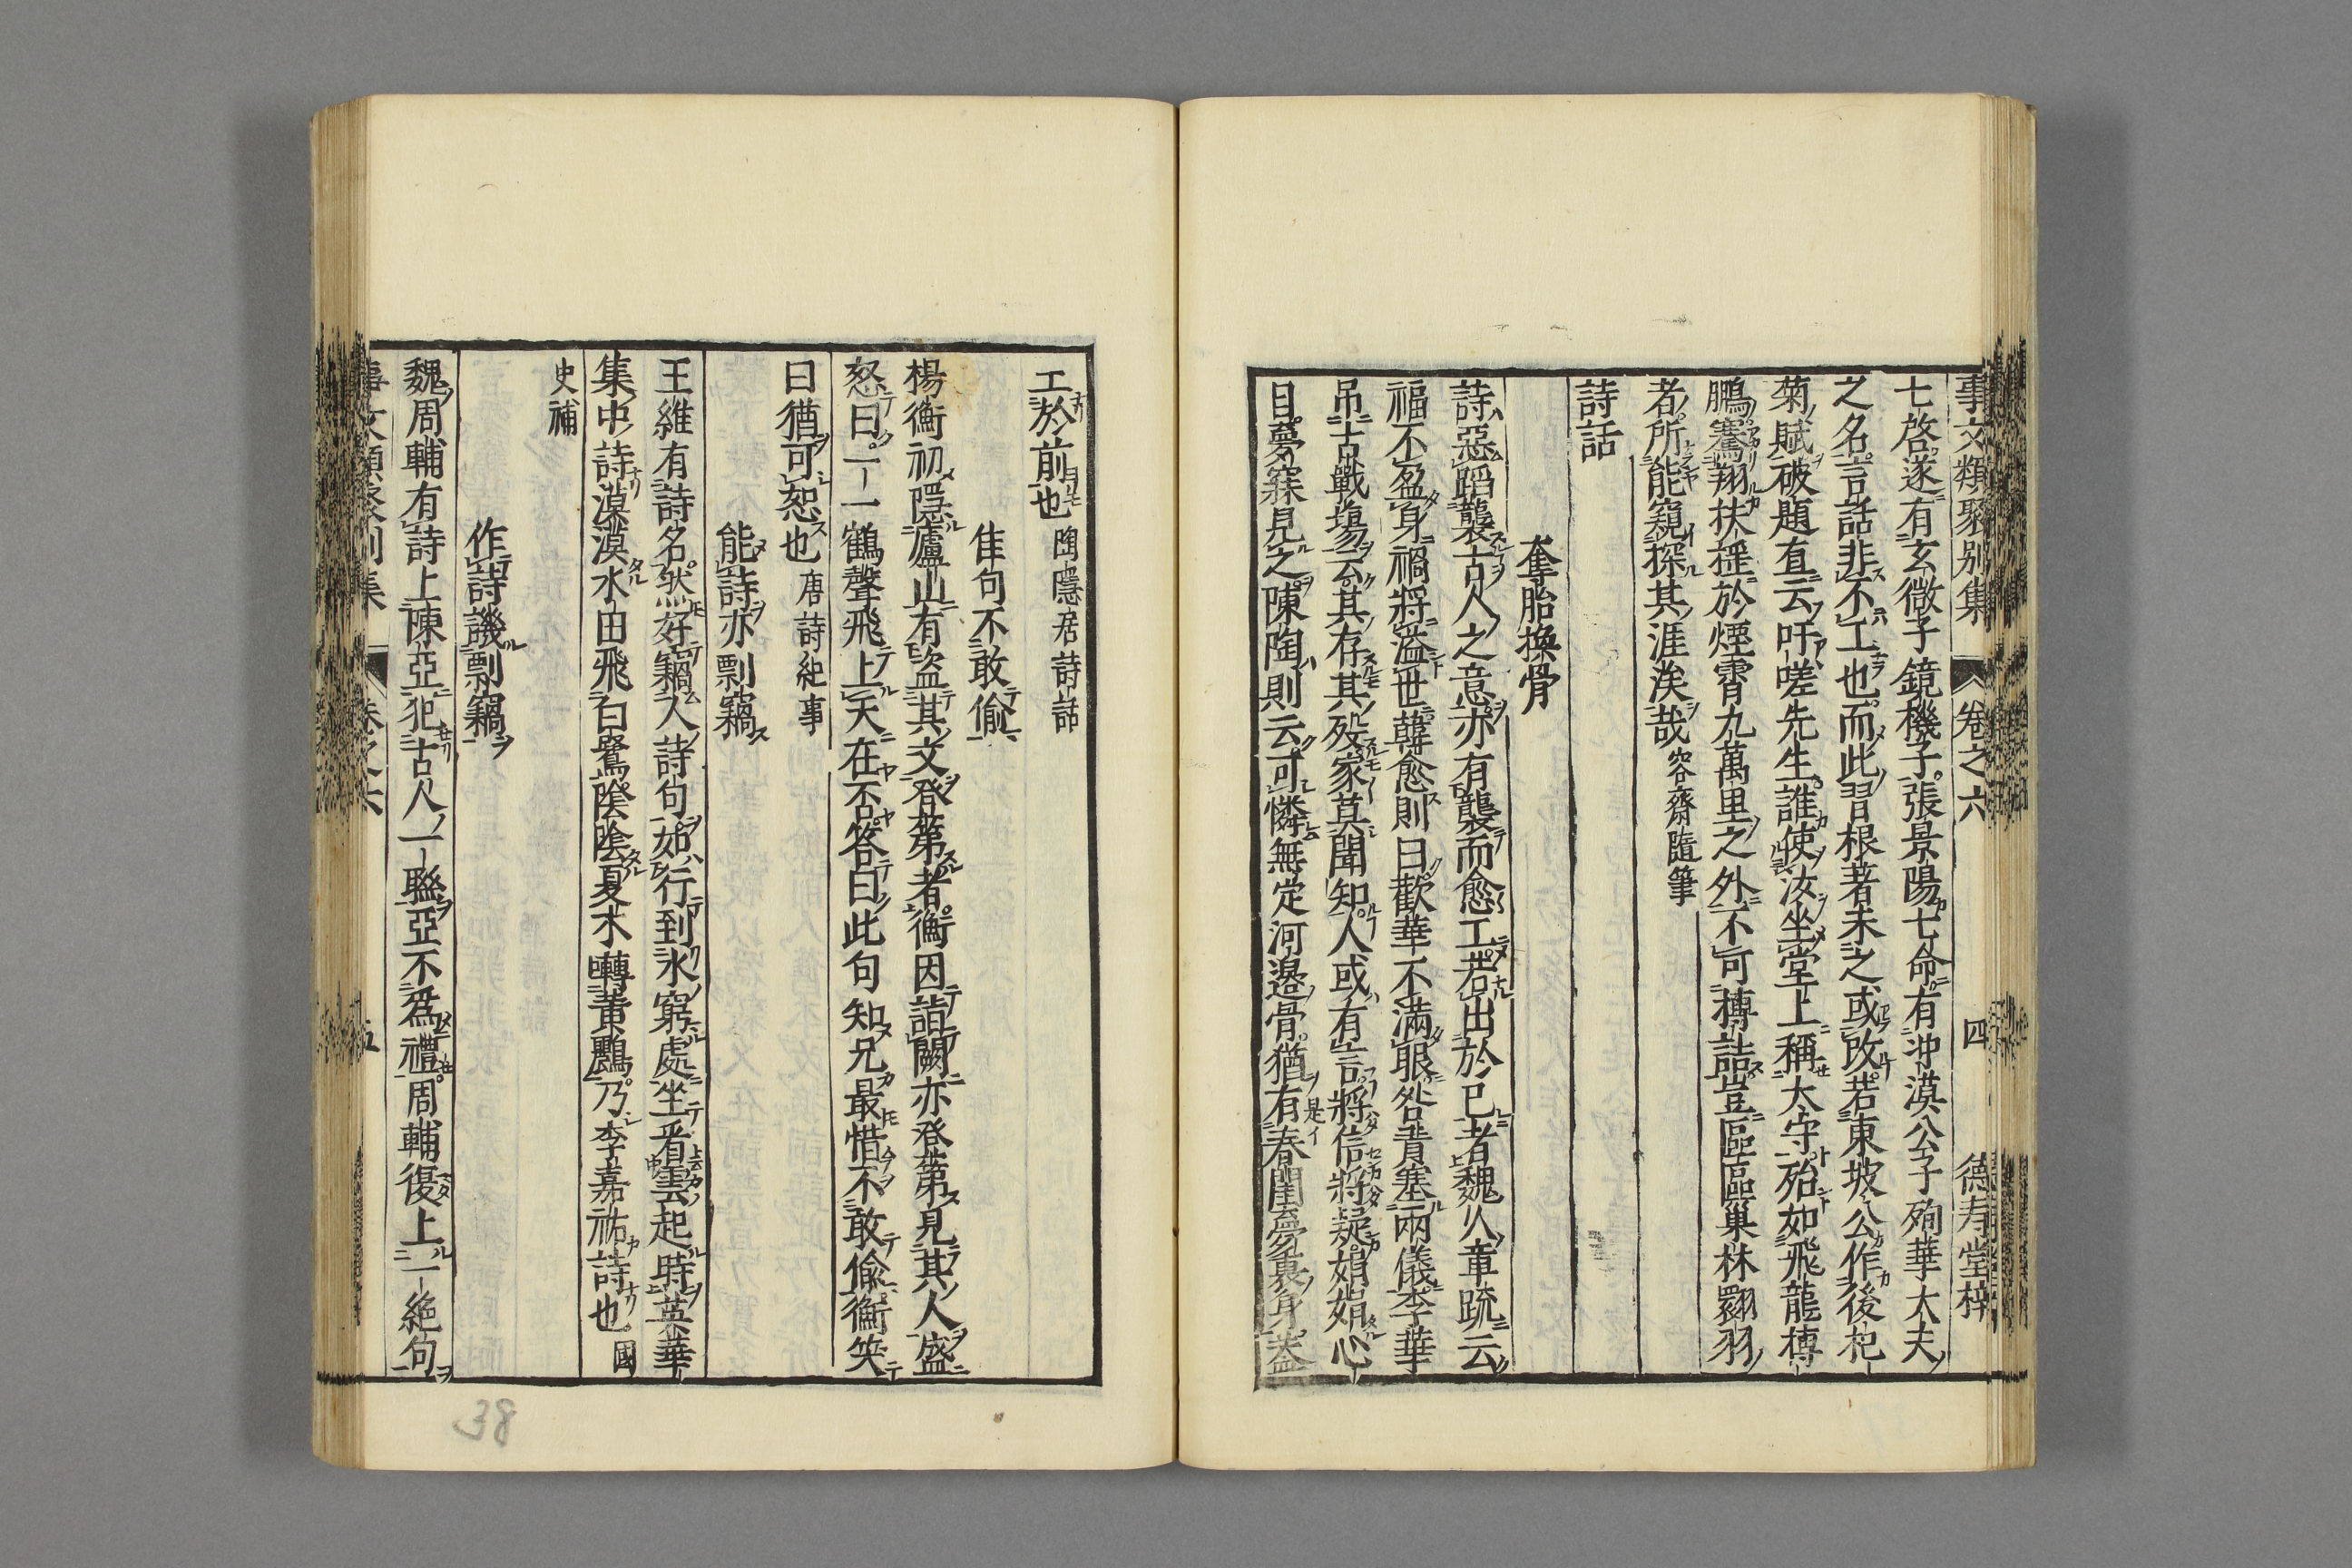 事文類聚别集 卷之六 四 德寿堂梓
七啓遂有玄微子鏡機子張景陽七命有沖漠公子殉華大夫
之名言話非不工也而此習根著未之或改若東坡公作後杞
菊賦破題直云吁嗟先生誰使汝坐堂上稱太守殆如飛龍摶
鵬騫翔扶揺於煙霄九萬里之外不可摶詰豈區區巢林翾羽
者所能窺探其涯涘哉 容齋隨筆
詩話
奪胎換骨
詩惡蹈襲古人之意亦有襲而愈工若出於已者魏人章疏云
福不盈身禍將溢世韓愈則曰歡華不滿眼咎責塞兩儀李華
吊古戰塲云其存其殁家莫聞知人或有言將信將疑娟娟心
目夢寐見之陳陶則云可憐無定河邉骨猶有春閨夢裏身盖
工於前也 陶隱居詩話
佳句不敢偷
楊衡初隱廬山有盗其文登第者衡因詣闕亦登第見其人盛
怒曰一一鶴聲飛上天在否答曰此句知兄最惜不敢偷衡笑
曰猶可恕也 唐詩紀事
能詩亦剽竊
王維有詩名然好竊人詩句如行到水窮處坐看雲起時英華
集中詩漠漠水田飛白鷺陰陰夏木囀黄鸝乃李嘉祐詩也 國
史補
作詩譏剽竊
魏周輔有詩上陳亞犯古人一聯亞不爲禮周輔復上一絶句